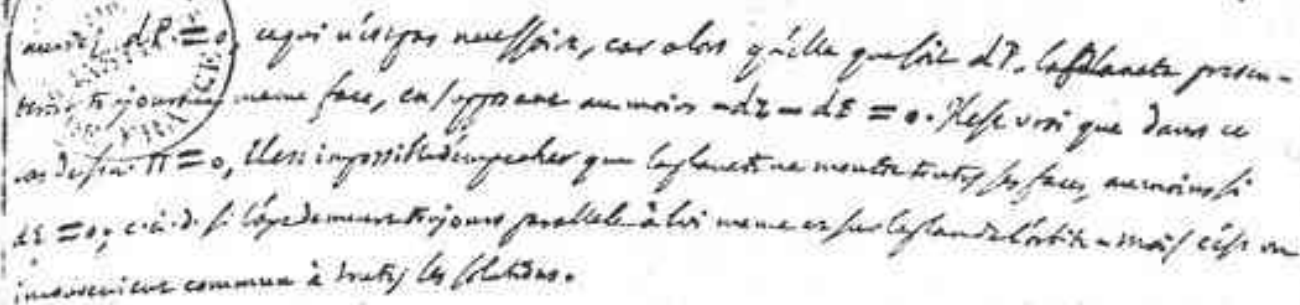 dP = 0, ce qui n'est pas necessaire, car alors quelle que soit dP, la planete presen-
toujours meme face, en supposant au moins dZ - dE = 0. Il est vrai que dans ce
cas de sin Π = 0, il est impossible d'empecher que la planete ne montre toutes ses faces, au moins si
dE = 0, c. à. d. si l'axe demeure toujours parallele à lui meme et sur le plan de l'orbite mais c'est un
inconvenient commun à toutes les solutions.